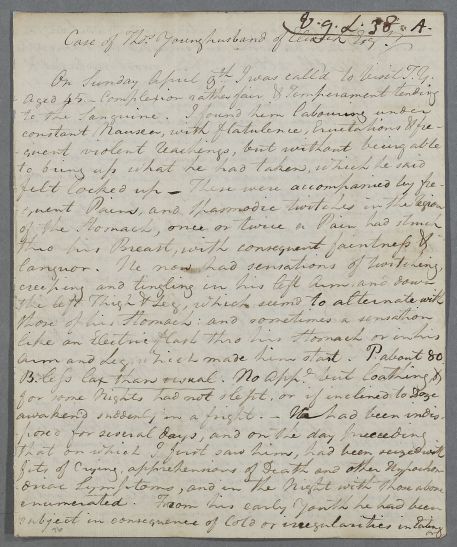 V. 9. L. 38. A.
Case of Thos. Younghusband of
On Sunday April 9th I was call'd to Visit T.Y.
aged 45 - Complexion rather fair & Temperament tending
to the Sanguine. I found him labouring under
constant Nausea, with flatulence, Eructations & fre-
quent violent reachings, but without being able
to bring up what he had taken, which he said
felt locked up - These were accompanied by fre-
quent Pains, and spasmodic twitches in the region
of the Stomach, once or twice a Pain had struck
thro his Breast, with consequent faintness &
languor. He now had sensations of twitching,
creeping and tingling in his left arm, and down
the left Thigh & Leg, which seem'd to alternate with
those of his Stomach: and sometimes a sensation
like an Electric flash thro his Stomach or in his
arm and Leg, which made him start. P. about 80
B. less lax than usual. No appe. but loathing, &
for some Nights had not slept, or if inclined to Doze
awakend suddenly in a fright. - He had been indis-
posed for several days, and on the day preceeding
that on which I first saw him, had been seized with
fits of Crying, apprehensions of Death and other Hypochon-
driac Symptoms, and in the Night with those above
enumerated. From his early Youth he had been
subject in consequence of Cold or irregularities in Eating